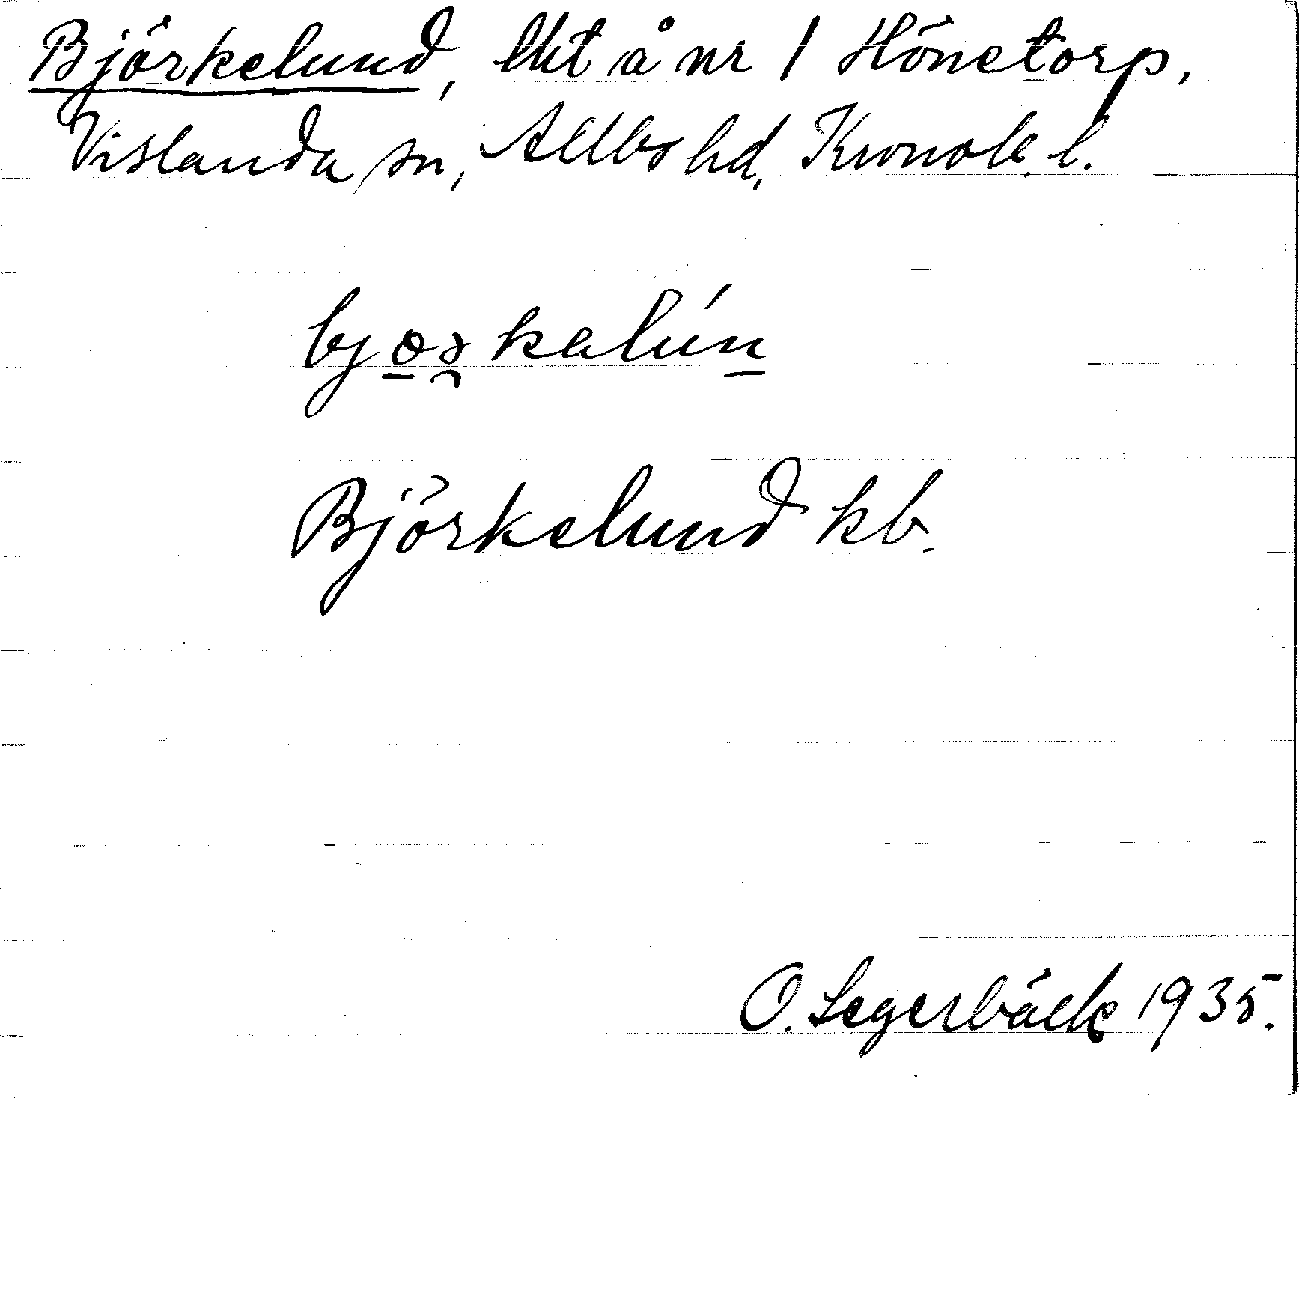 Björkelund, lht å nr 1 Hönetorp,
Vislanda sn, Allbo hd, Kronob. l.
Björkelund kb.
O. Segerbäck 1935.